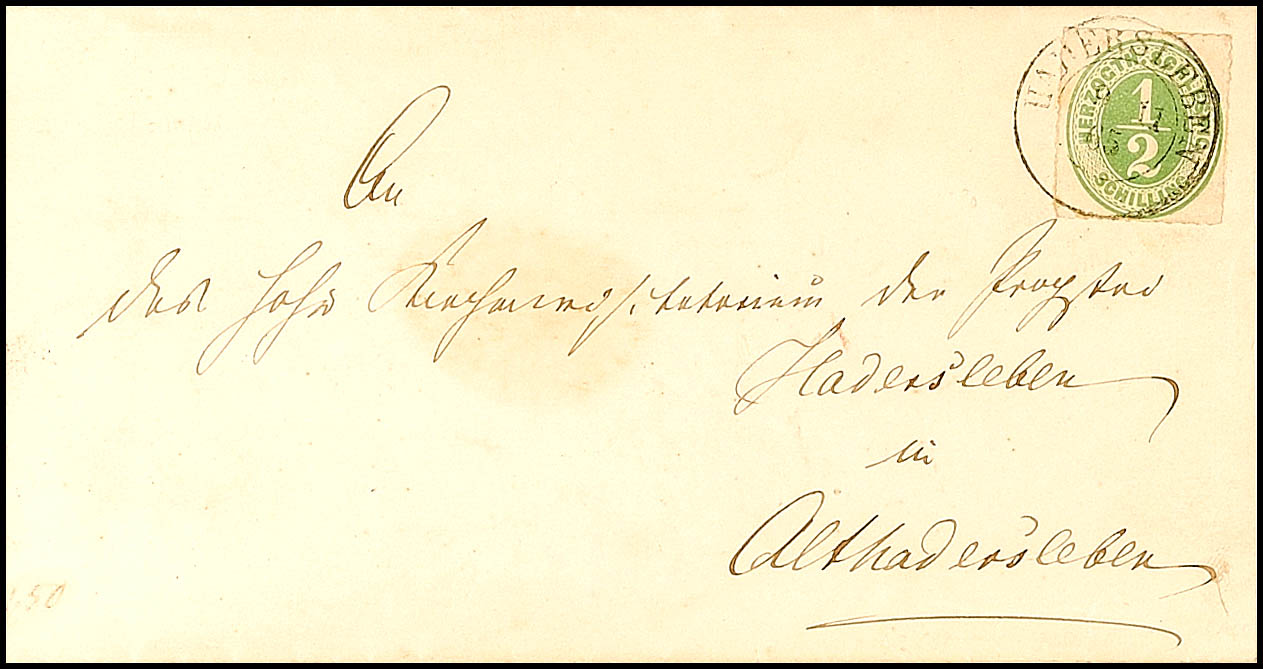 HADERSLEBEN
HERZOGTH. SCHLESWIG
1/2
SCHILLING
An
das hohe Kirchenvisitatorium der Propstei
Hadersleben
in
Althadersleben